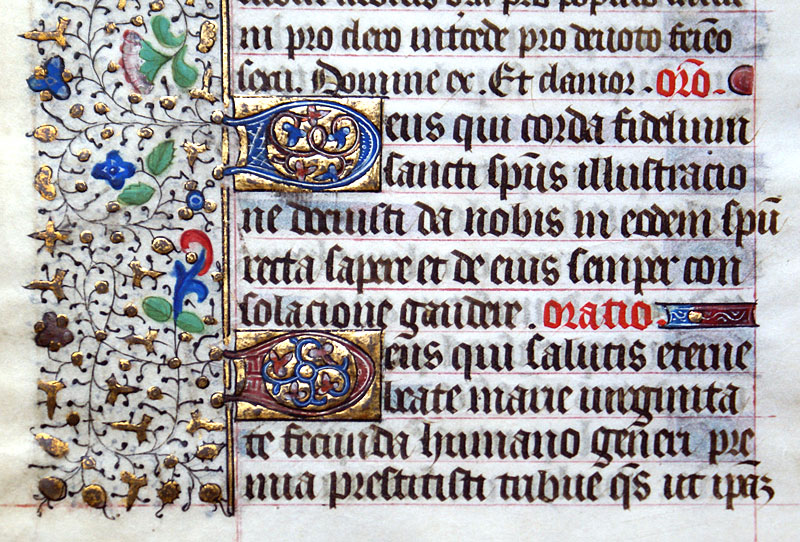 pro populo
ni pro clero intcede pro deuoto
sexu. Domine ex. Et clamor. orõ.
Deus qui corda fidelium
sancti spũs illustracio
ne docuisti da nobis in eodem spũ
recta sapere et de eius semper con
solacione gaudere. oratio.
Deus qui salutis eterne
beate marie uirginita
te fecunda humano generi pre
mia prestitisti tribue q̃s ut ip̃aȝ